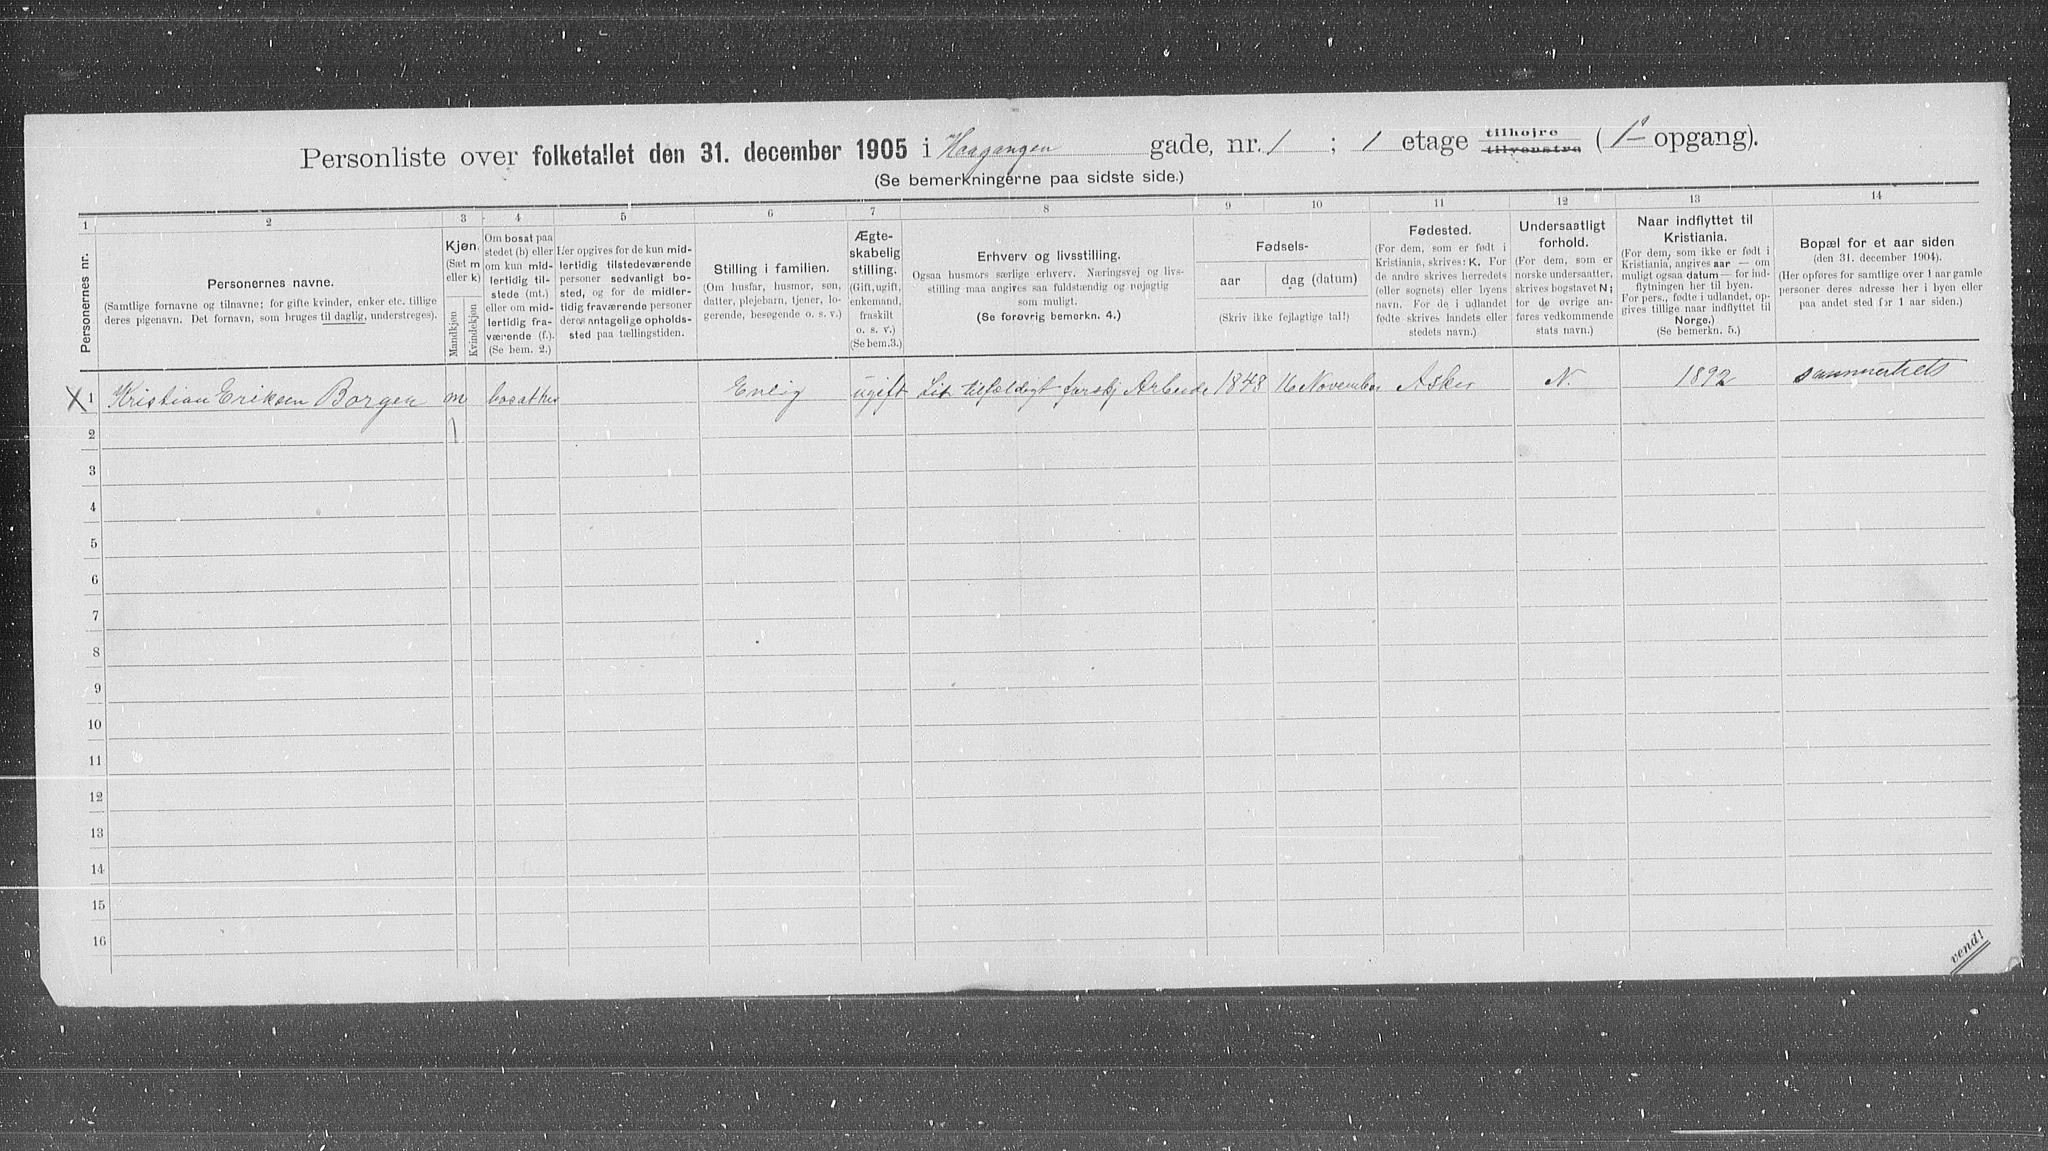 Personliste over folketallet den 31. december 1905 i Haagangen gade, nr. 1 ; 1 etage tilhøjre tilvenstre ( 1ᵉ opgang).
(Se bemerkningerne paa sidste side.)
1 2 3 4 5 6 7 8 9 10 11 12 13 14
Personernes nr.
Personernes navne.
(Samtlige fornavne og tilnavne; for gifte kvinder, enker etc. tillige
deres pigenavn. Det fornavn, som bruges til daglig, understreges).
Kjøn.
(Sæt m
eller k)
Mandkjøn
Kvindekjøn
Om bosat paa
stedet (b) eller
om kun mid-
lertidig til-
stede (mt.)
eller om mid-
lertidig fra-
værende (f.).
(Se bem. 2.)
Her opgives for de kun mid-
lertidig tilstedeværende
personer sedvanligt bo-
sted, og for de midler-
tidig fraværende personer
deres antagelige opholds-
sted paa tællingstiden.
Stilling i familien.
(Om husfar, husmor, søn,
datter, plejebarn, tjener, lo-
gerende, besøgende o. s. v.)
Ægte-
skabelig
stilling.
(Gift, ugift,
enkemand,
fraskilt
o. s. v.)
(Se bem.3.)
Erhverv og livsstilling.
Ogsaa husmors særlige erhverv. Næringsvej og livs-
stilling maa angives saa fuldstændig og nøjagtig
som muligt.
(Se forøvrig bemerkn. 4.)
Fødsels-
aar dag (datum)
(Skriv ikke fejlagtige tal!)
Fødested.
(For dem, som er født i
Kristiania, skrives: K. For
de andre skrives herredets
(eller sognets) eller byens
navn. For de i udlandet
fødte skrives landets eller
stedets navn.)
Undersaatligt
forhold.
(For dem, som er
norske undersaatter,
skrives bogstavet N;
for de øvrige an-
føres vedkommende
stats navn.)
Naar indflyttet til
Kristiania.
(For dem, som ikke er født i
Kristiania, angives aar — om
muligt ogsaa datum — for ind-
flytningen her til byen.
For pers., fødte i udlandet, op-
gives tillige naar indflyttet til
Norge.)
(Se bemerkn. 5.)
Bopæl for et aar siden
(den 31. december 1904).
(Her opføres for samtlige over 1 aar gamle
personer deres adresse her i byen eller
paa andet sted for 1 aar siden.)
X 1 Kristian Eriksen Borgen m bosat her Enlig ugift Lit tilfældigt forskj Arbeide 1848 16 November Asker N. 1892 sammesteds
2 1
3
4
5
6
7
8
9
10
11
12
13
14
15
16
vend!